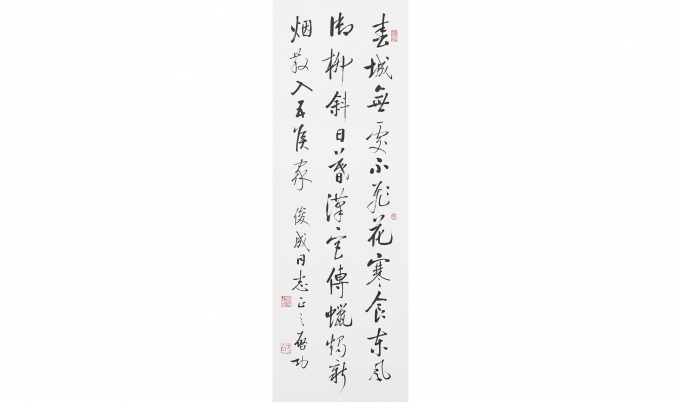 春城無處不飛花寒食东風
御柳斜日暮漢宮傳蠟燭新
烟散入五侯家 俊成同志正之 啓功